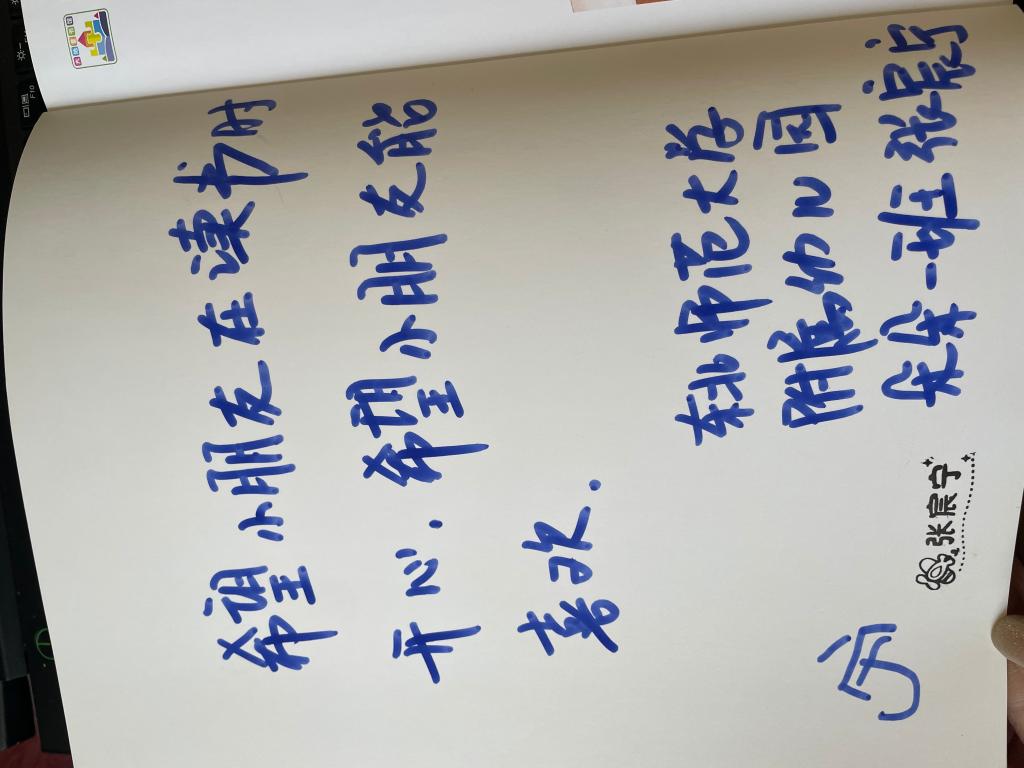 希望小朋友在读书时
开心.希望小朋友能
喜欢.
东北师范大学
附属幼儿园
朵朵一班 张宸宁
张宸宁
宁
F10